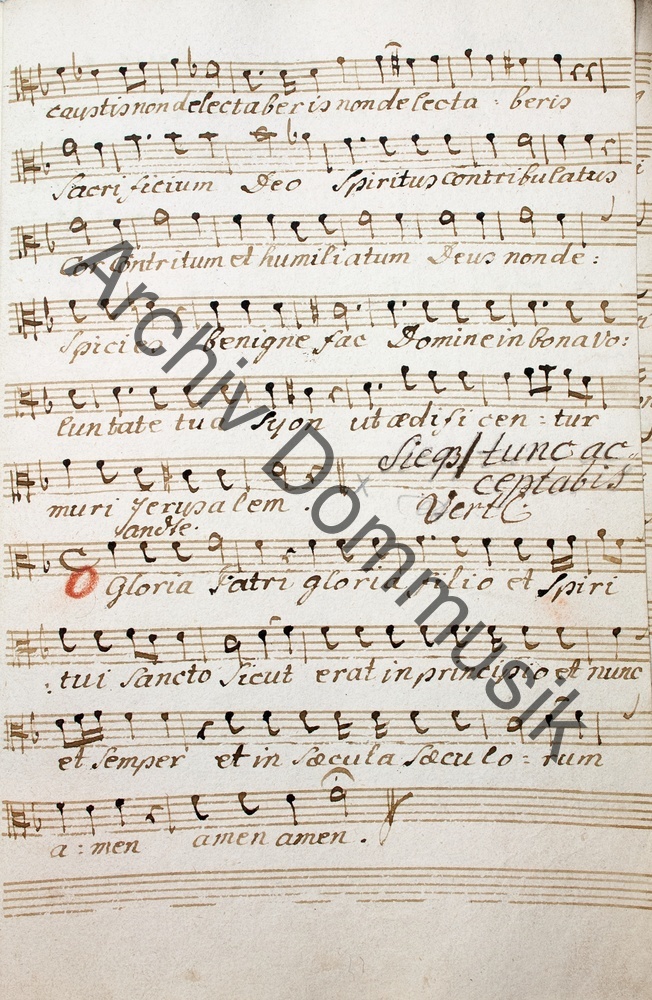 caustis non delectaberis non delecta : beris
Sacrificium Deo Spiritus contribulatus
Cor Contritum et humiliatum Deus non de :
Spicies benigne fac Domine in bona vo:
luntate tua Syon ut ædificen : tur
muri Jerusalem .
Sieqs / tunc ac
ceptabis
Vert
Gloria Patri gloria filio et Spiri
: tui Sancto Sicut erat in principio et nunc
et Semper et in Sæcula Sæculo : rum
a : men amen amen .
Archiv Dommusik